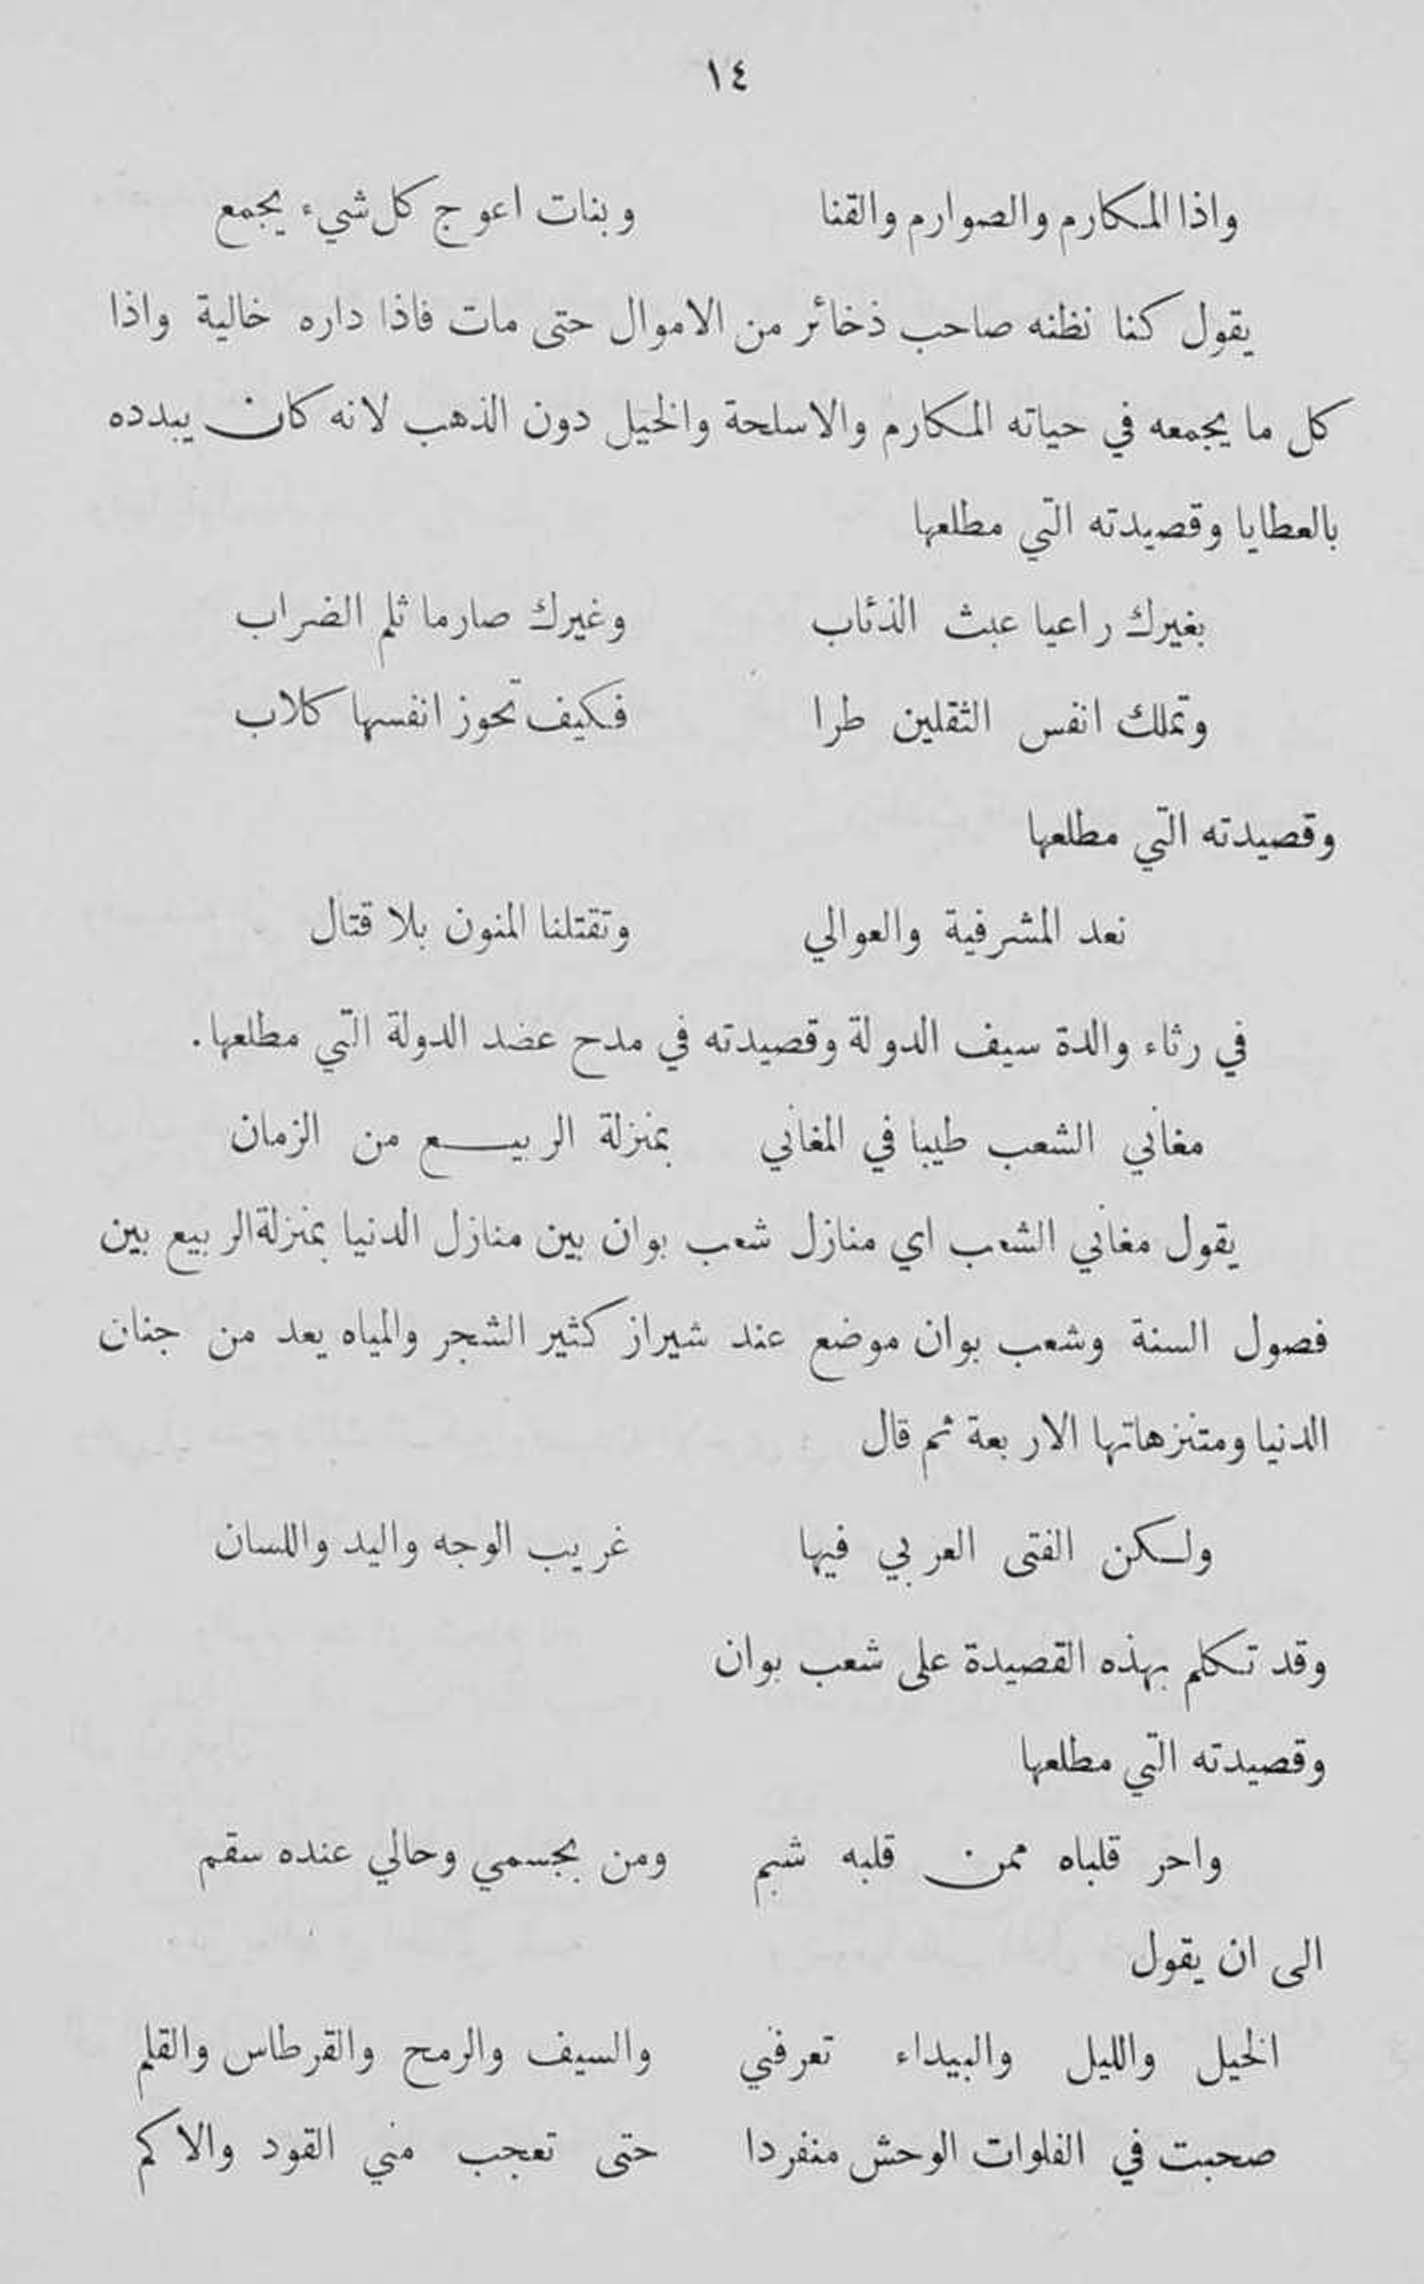 ١٤
واذا المكارم والصوارم والقنا وبنات اعوج كل شيء يجمع
يقول كنا نظنه صاحب ذخائر من الاموال حتى مات فاذا داره خالية واذا
كل ما يجمعه في حياته المكارم والاسلحة والخيل دون الذهب لانه كان يبدده
بالعطايا وقصيدته التي مطلعها
بغيرك راعيا عبث الذئاب وغيرك صارما ثلم الضراب
وتملك انفس الثقلين طرا فكيف تحوز انفسها كلاب
وقصيدته التي مطلعها
نعد المشرفية والعوالي وتقتلنا المنون بلا قتال
في رثاء والدة سيف الدولة وقصيدته في مدح عضد الدولة التي مطلعها.
مغاني الشعب طيبا في المغاني بمنزلة الربيـــع من الزمان
يقول مغاني الشعب اي منازل شعب بوان بين منازل الدنيا بمنزلة الربيع بين
فصول السنة وشعب بوان موضع عند شيراز كثير الشجر والمياه يعد من جنان
الدنيا ومتنزهاتها الاربعة ثم قال
ولـكن الفتى العربي فيها غريب الوجه واليد واللسان
وقد تـكلم بهذه القصيدة على شعب بوان
وقصيدته التي مطلعها
واحر قلباه ممن قلبه شبم ومن بجسمي وحالي عنده سقم
الى ان يقول
الخيل والليل والبيداء تعرفني والسيف والرمح والقرطاس والقلم
صحبت في الفلوات الوحش منفردا حتى تعجب مني القود والاكم